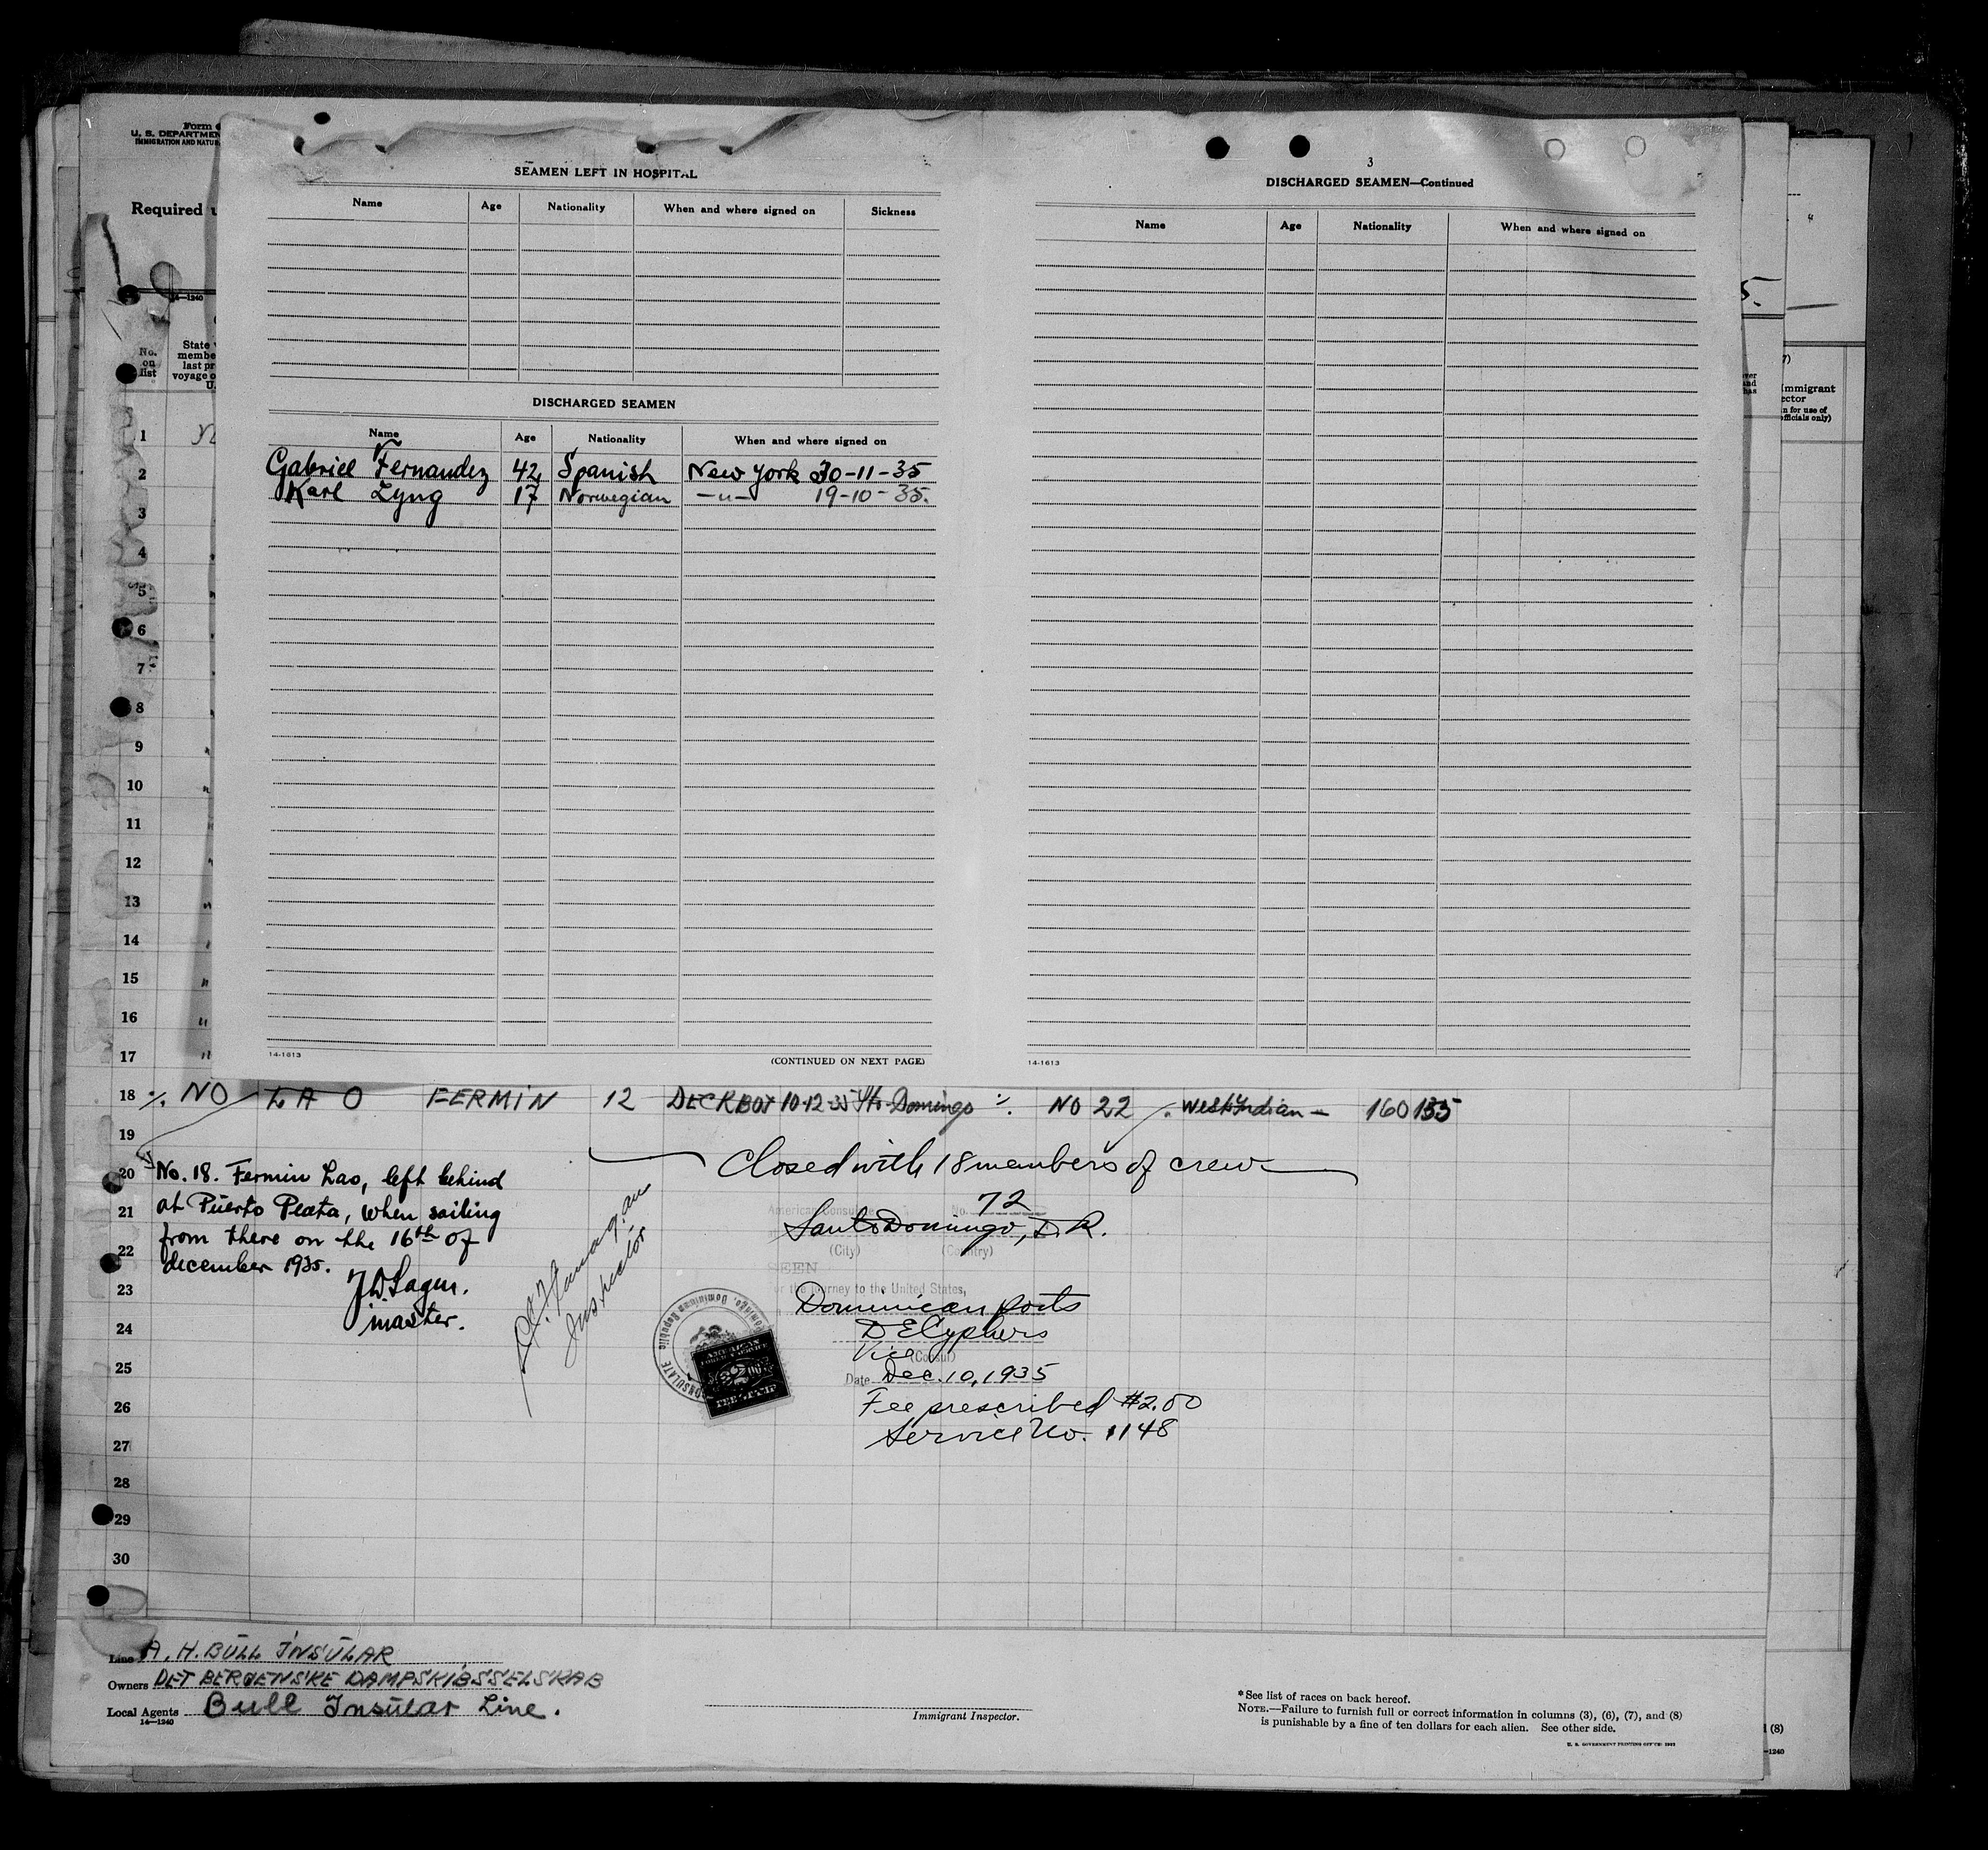 Form
U. S. DEPARTMEN
IMMIGRATION AND NATUR
Required
14—1240
No. on list
State
membe
last pr
voyage o
U.
SEAMEN LEFT IN HOSPITAL
Name Age Nationality When and where signed on Sickness
DISCHARGED SEAMEN
Name Age Nationality When and where signed on
Gabriel Fernandez 42 Spanish New York 30-11-35
Karl Lyng 17 Norwegian —"— 19-10-35.
14-1613
(CONTINUED ON NEXT PAGE)
3
DISCHARGED SEAMEN—Continued
Name Age Nationality When and where signed on
14-1613
5.
7)
mmigrant
ector
n for use of
officials only)
1
2
3
4
5
6
7
8
9
10
11
12
13
14
15
16
17
18 ./. NO LAO FERMIN 12 DECKBOY 10-12-35 Sto. Domingo ./. NO 22 West Indian — 160 135
19
20
21
22
23
24
25
26
27
28
29
30
No. 18. Fermin Lao, left behind
at Puerto Plata, when sailing
from there on the 16th of
december 1935.
master.
Inspector
Closed with 18 members of crew
American Consulate No. 72
Santo Domingo, D. R.
(City) (Country)
SEEN
or the journey to the United States,
Dominican ports
D E Cyphers
Vice (Consul)
Date Dec. 10, 1935
Fee prescribed $2.00
Service No. 1148
CONSULATE
Dominican Republic
AMERICAN
FOREIGN SERVICE
FEE STAMP
Line A. H. BULL INSULAR
Owners DET BERGENSKE DAMPSKIBSSELSKAB
Local Agents Bull Insular Line.
14—1240
Immigrant Inspector.
*See list of races on back hereof.
NOTE.—Failure to furnish full or correct information in columns (3), (6), (7), and (8)
is punishable by a fine of ten dollars for each alien. See other side.
U. S. GOVERNMENT PRINTING OFFICE
(8)
—1240